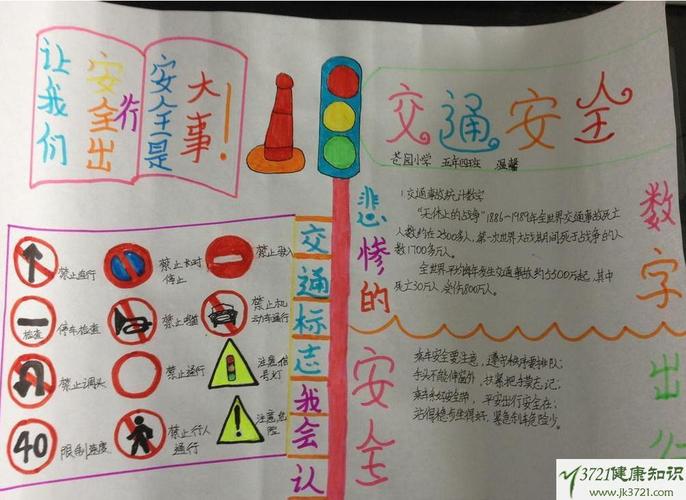 让我们
安全出
行
安全是
大事!
交通安全
小学 五年四班 温馨
悲惨的
数字
1.交通事故统计数字
"无休止的战争"1886-1989年全世界交通事故死亡
人数约在2300多人,第一次世界大战期间死于战争的人
数1700多万人。
全世界平均每年发生交通事故约5500万起,其中
死亡30万人,受伤800万人。
交通标志我会认
禁止直行
禁止长时
停止
禁止驶入
检查
停车检查
禁止鸣笛
禁止机
动车通行
禁止调头
禁止通行
注意信
号灯
40
限制速度
禁止行人
通行
注意危
险
安全
出行
乘车安全要注意,遵守秩序要排队;
手头不能伸窗外,扶紧把手莫忘记;
乘车系好安全带,平安出行安全在;
站得稳坐得好,紧急刹车危险少。
3721健康知识
www.jk3721.com